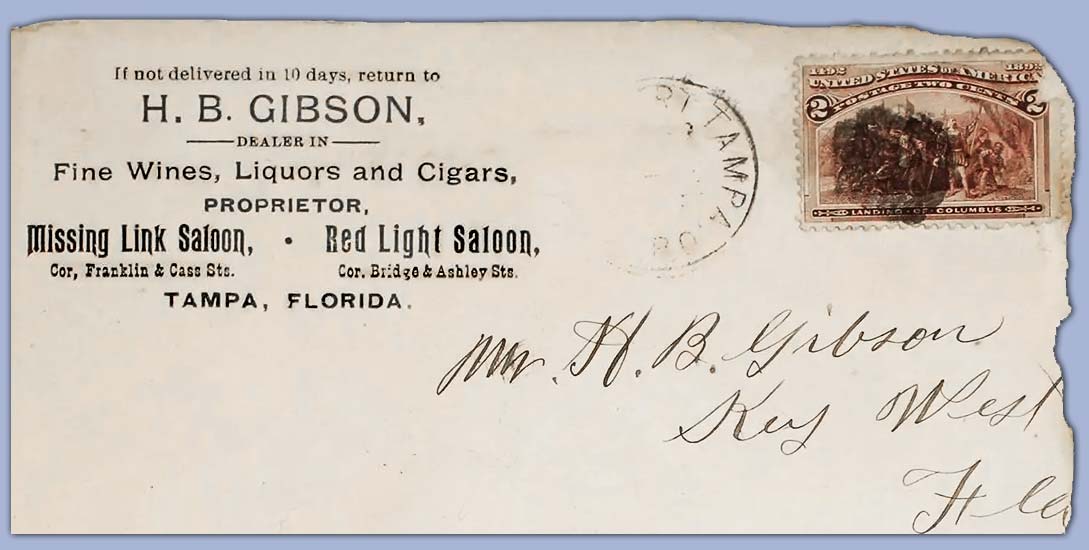 If not delivered in 10 days, return to
H. B. GIBSON,
DEALER IN
Fine Wines, Liquors and Cigars,
PROPRIETOR,
Missing Link Saloon, • Red Light Saloon,
Cor, Franklin & Cass Sts. Cor. Bridge & Ashley Sts.
TAMPA, FLORIDA.
TAMPA
1492 1892
UNITED STATES OF AMERICA
POSTAGE TWO CENTS
2 2
LANDING OF COLUMBUS
Mr. H. B. Gibson
Key West
Fla